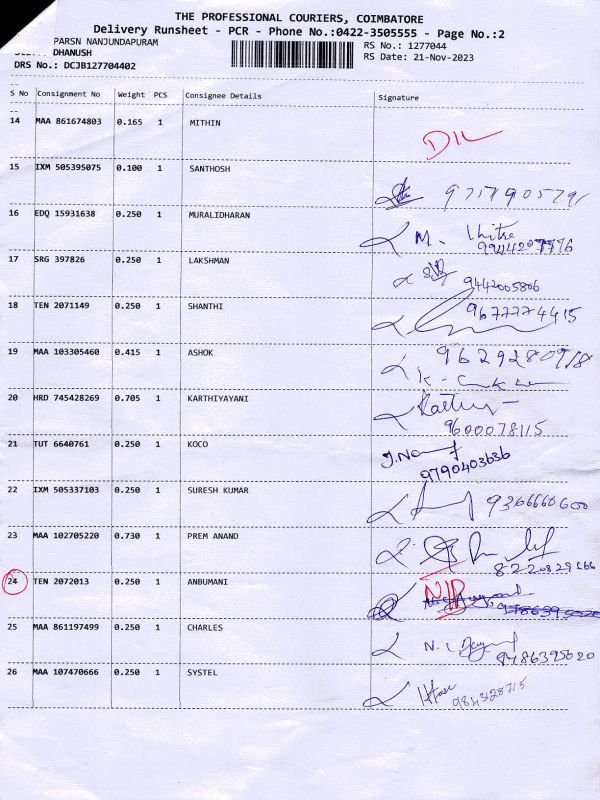 THE PROFESSIONAL COURIERS, COIMBATORE
Delivery Runsheet - PCR - Phone No.:0422-3505555 - Page No.:2
PARSN NANJUNDAPURAM
RS No.: 1277044
DHANUSH
RS Date: 21-Nov-2023
DRS No.: DCJB127704402
S No Consignment No Weight PCS Consignee Details Signature
14 MAA 861674803 0.165 1 MITHIN
15 IXM 505395075 0.100 1 SANTHOSH
16 EDQ 15931638 0.250 1 MURALIDHARAN
M.
17 SRG 397826 0.250 1 LAKSHMAN
9442005806
18 TEN 2071149 0.250 1 SHANTHI
9677774415
19 MAA 103305460 0.415 1 ASHOK
9629280918
20 HRD 745428269 0.705 1 KARTHIYAYANI
9600078115
21 TUT 6640761 0.250 1 KOCO
9790403636
22 IXM 505337103 0.250 1 SURESH KUMAR
9366666600
23 MAA 102705220 0.730 1 PREM ANAND
24 TEN 2072013 0.250 1 ANBUMANI
25 MAA 861197499 0.250 1 CHARLES
9486395020
26 MAA 107470666 0.250 1 SYSTEL